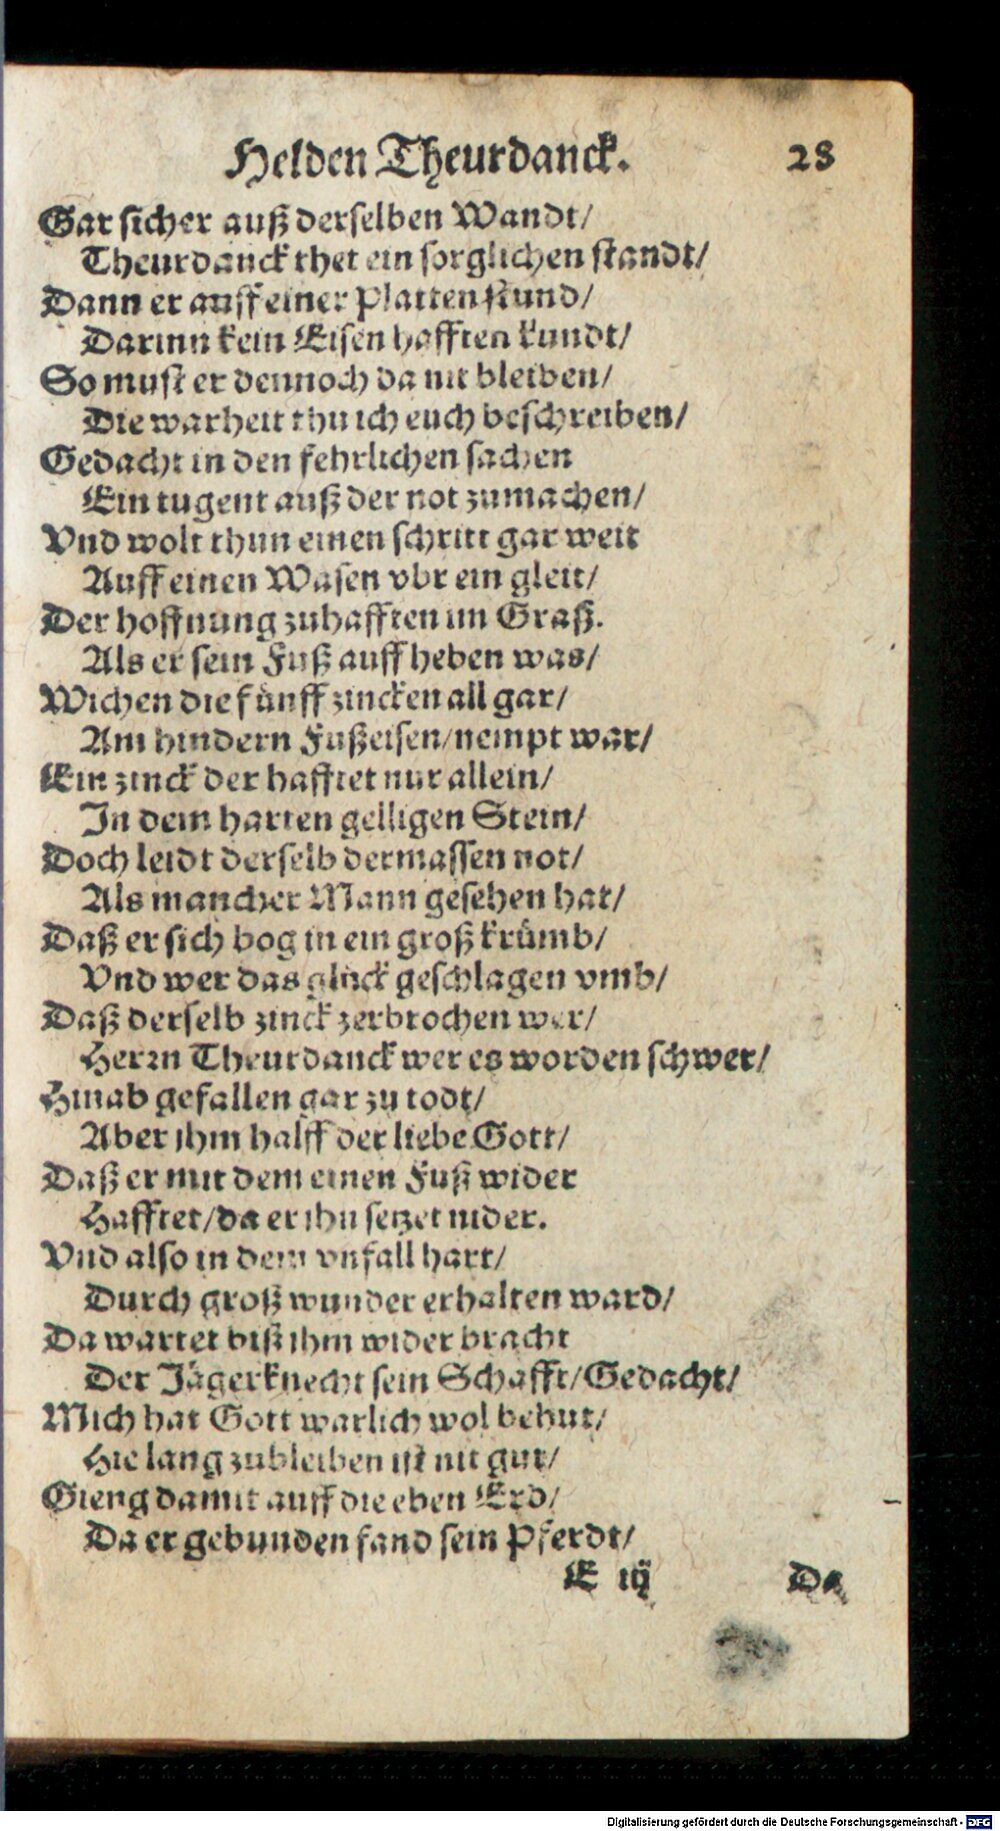 Helden Theurdanck. 28
Gar sicher auß derselben Wandt/
Theurdanck thet ein sorglichen standt/
Dann er auff einer Platten stund/
Darinn kein Eisen hafften kundt/
So must er dennoch da nit bleiben/
Die warheit thu ich euch beschreiben/
Gedacht in den fehrlichen sachen
Ein tugent auß der not zumachen/
Vnd wolt thun einen schritt gar weit
Auff einen Wasen vbr ein gleit/
Der hoffnung zuhafften im Graß.
Als er sein Fuß auff heben was/
Wichen die fünff zincken all gar/
Am hindern Fußeisen/nempt war/
Ein zinck der hafftet nur allein/
In dem harten gelligen Stein/
Doch leidt derselb dermassen not/
Als mancher Mann gesehen hat/
Daß er sich bog in ein groß krümb/
Vnd wer das glück geschlagen vmb/
Daß derselb zinck zerbrochen wer/
Herrn Theurdanck wer es worden schwer/
Hinab gefallen gar zu todt/
Aber ihm halff der liebe Gott/
Daß er mit dem einen Fuß wider
Hafftet/da er ihn setzet nider.
Vnd also in dem vnfall hart/
Durch groß wunder erhalten ward/
Da wartet biß ihm wider bracht
Der Jägerknecht sein Schafft/Gedacht/
Mich hat Gott warlich wol behut/
Hie lang zubleiben ist nit gut/
Gieng damit auff die eben Erd/
Da er gebunden fand sein Pferdt/
E iij Da
Digitalisierung gefördert durch die Deutsche Forschungsgemeinschaft - DFG